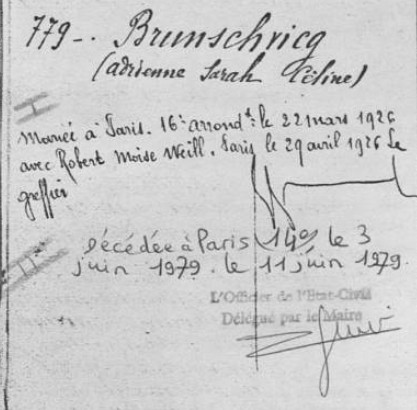 779 - Brunschvicg
(Adrienne Sarah Céline)
Mariée à Paris. 16e arrondt. le 22 mars 1926
avec Robert Moïse Weill. Paris le 29 avril 1926 Le
greffier
Décédée à Paris 14e, le 3
juin 1979. le 11 juin 1979.
L'Officier de l'Etat-Civil
Délégué par le Maire